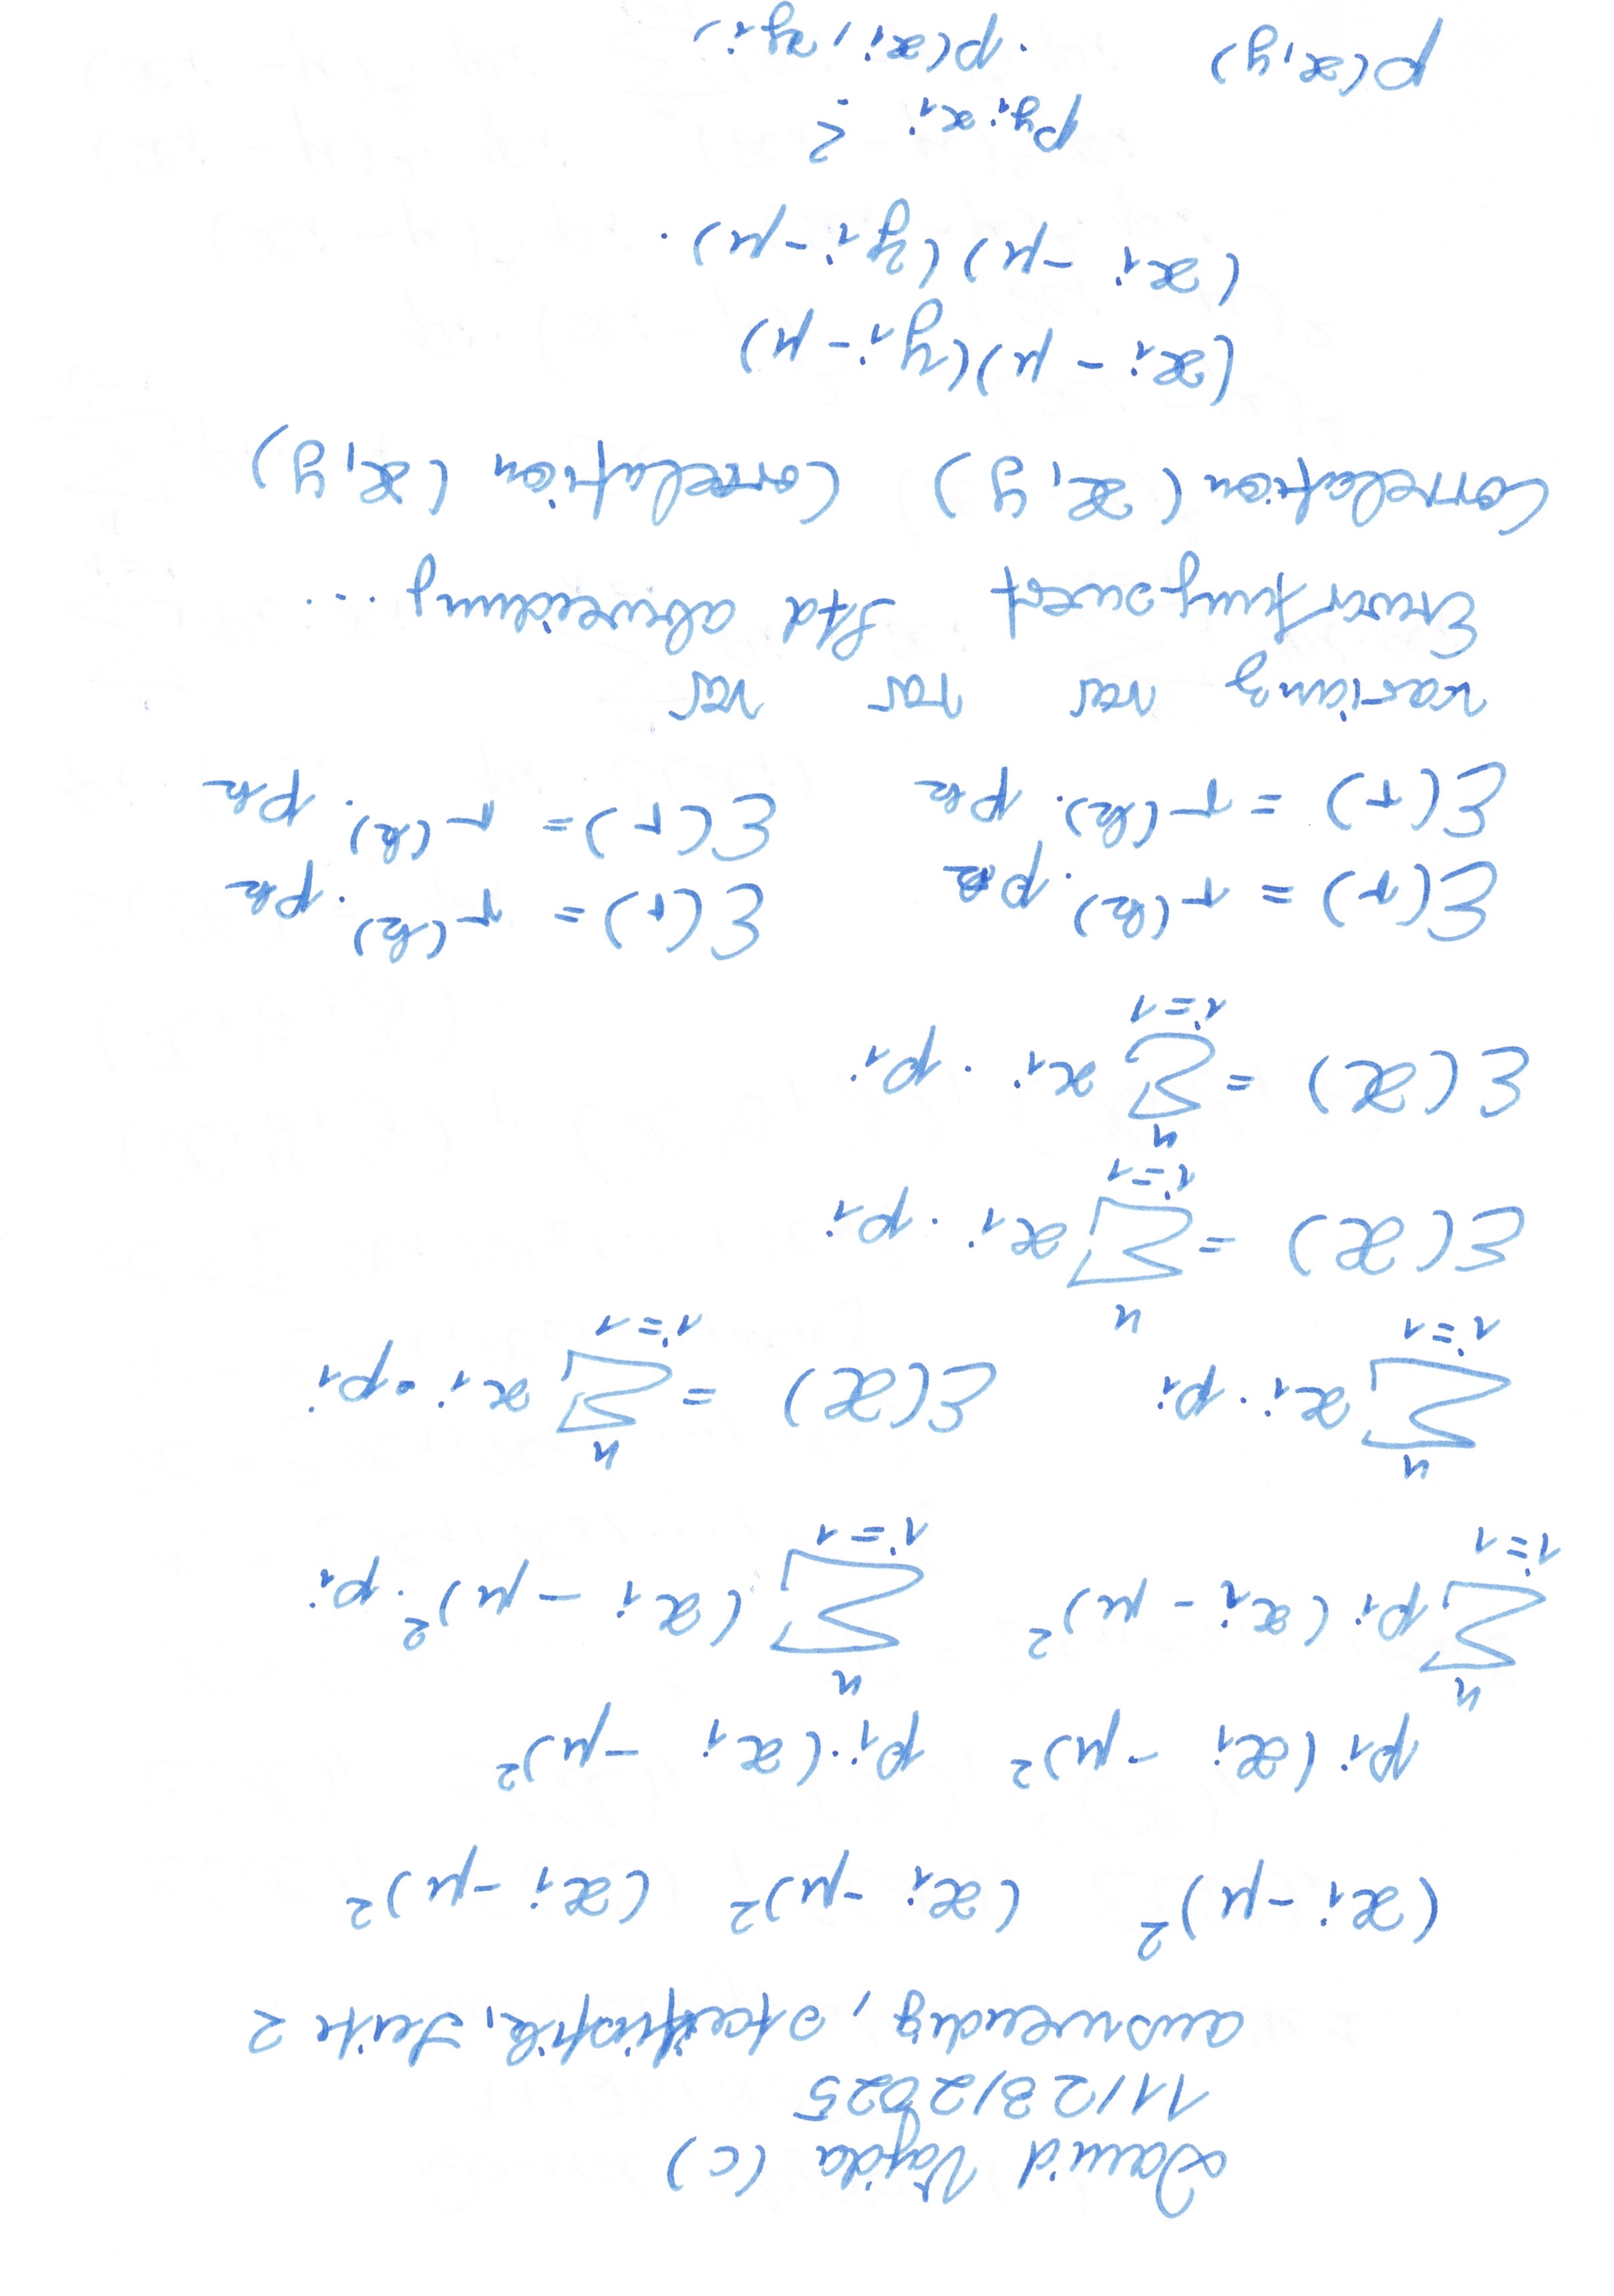 David Vajda (C)
11/23/2025
auswendig, statistik, Seite 2
(xi - μ)² (xi - μ)² (xi - μ)²
pi (xi - μ)² pi · (xi - μ)²
n ∑ i=1 pi (xi - μ)² n ∑ i=1 (xi - μ)² · pi
n ∑ i=1 xi · pi E(X) = n ∑ i=1 xi · pi
E(X) = n ∑ i=1 xi · pi
E(X) = n ∑ i=1 xi · pi
E(r) = r(k) · pk E(r) = r(k) · pk
E(r) = r(k) · pk E(r) = r(k) · pk
varianz var var var
Erwartungswert Std abweichung ...
Correlation (X, Y) Correlation (X, Y)
(xi - μ)(yi - μ)
(xi - μ)(yi - μ) ·
pyi xi
p(x, y) · p(xi, yi)